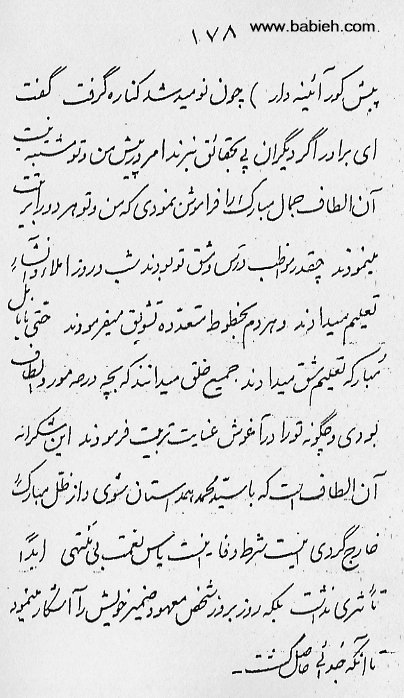 www.babieh.com
۱۷۸
پیش کور آئینه دار ) چون نومید شد کناره گرفت گفت
ای برادر اگر دیگران پی بحقائق نبرند امر در پیش من و تو مشتبه نیست
آن الطاف جمال مبارک را فراموش نمودی که من و تو هر دو را تربیت
مینمودند چقدر مواظب درس و مشق تو بودند شب و روز املاء و انشاء
تعلیم میدادند و هر دم بخطوط متعدده تشویق میفرمودند حتی بانامل
مبارکه تعلیم مشق میدادند جمیع خلق میدانند که بچه درجه مورد الطاف
بودی و چگونه تو را در آغوش عنایت تربیت فرمودند این شکرانه
آن الطاف است که با سید محمد همداستان شوی و از ظل مبارک
خارج گردی اینست شرط وفا اینست پاس نعمت بی منتهی ابداً
تأثیری نداشت بلکه روز بروز شخص معهود ضمیر خویش را آشکار مینمود
تا آنکه جدائی حاصل گشت -